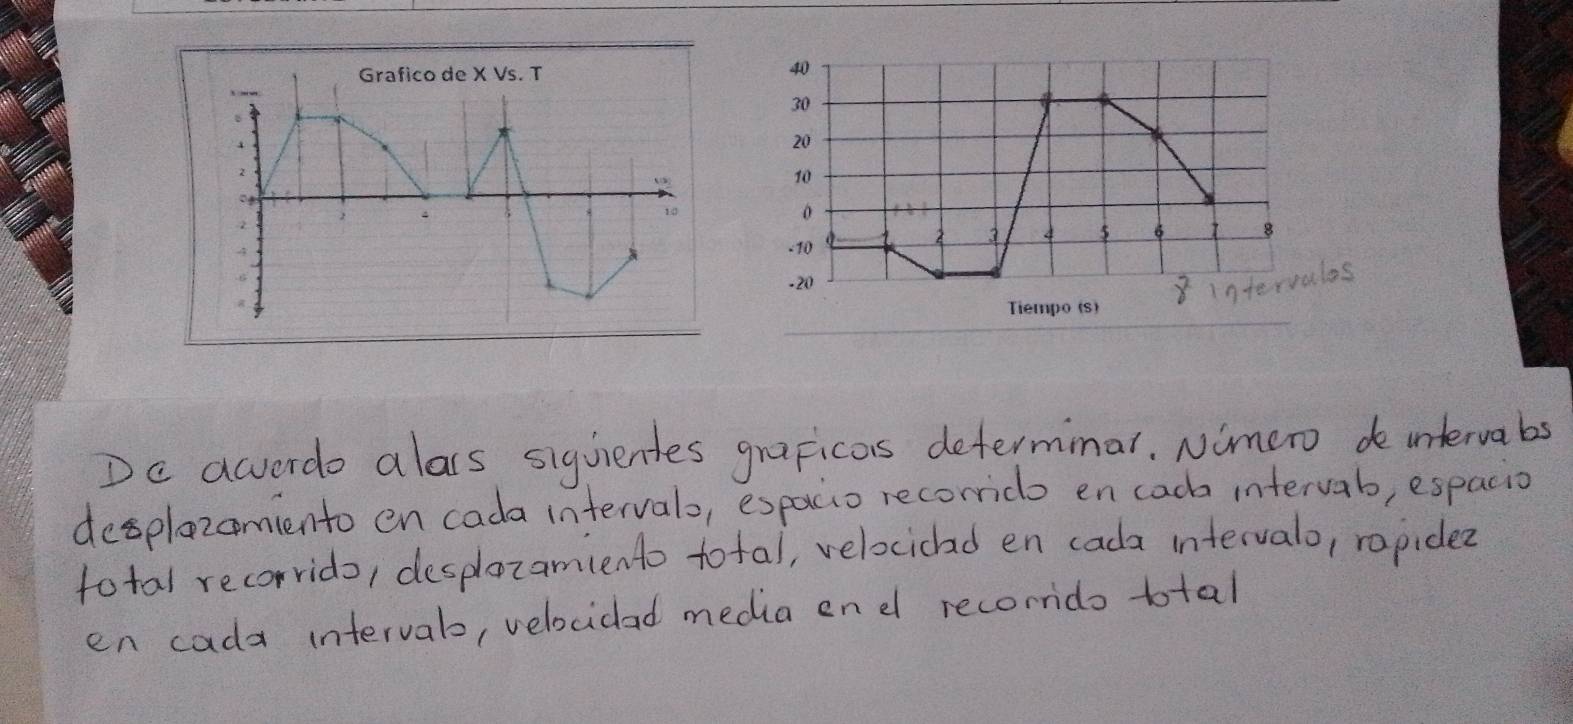 Grafico de X Vs. T
6
4
2
0
-2
-4
-6
-8
2
4
6
8
10
40
30
20
10
0
-10
-20
0 1 2 3 4 5 6 7 8
Tiempo (s)
8 intervalos
De acuerdo alas siguientes graficas determinar. Número de intervalos
desplazamiento en cada intervalo, espacio recorrido en cada intervalo, espacio
total recorrido, desplazamiento total, velocidad en cada intervalo, rapidez
en cada intervalo, velocidad media en el recorrido total